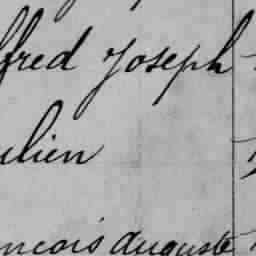 lfred Joseph
ulien
ncois auguste